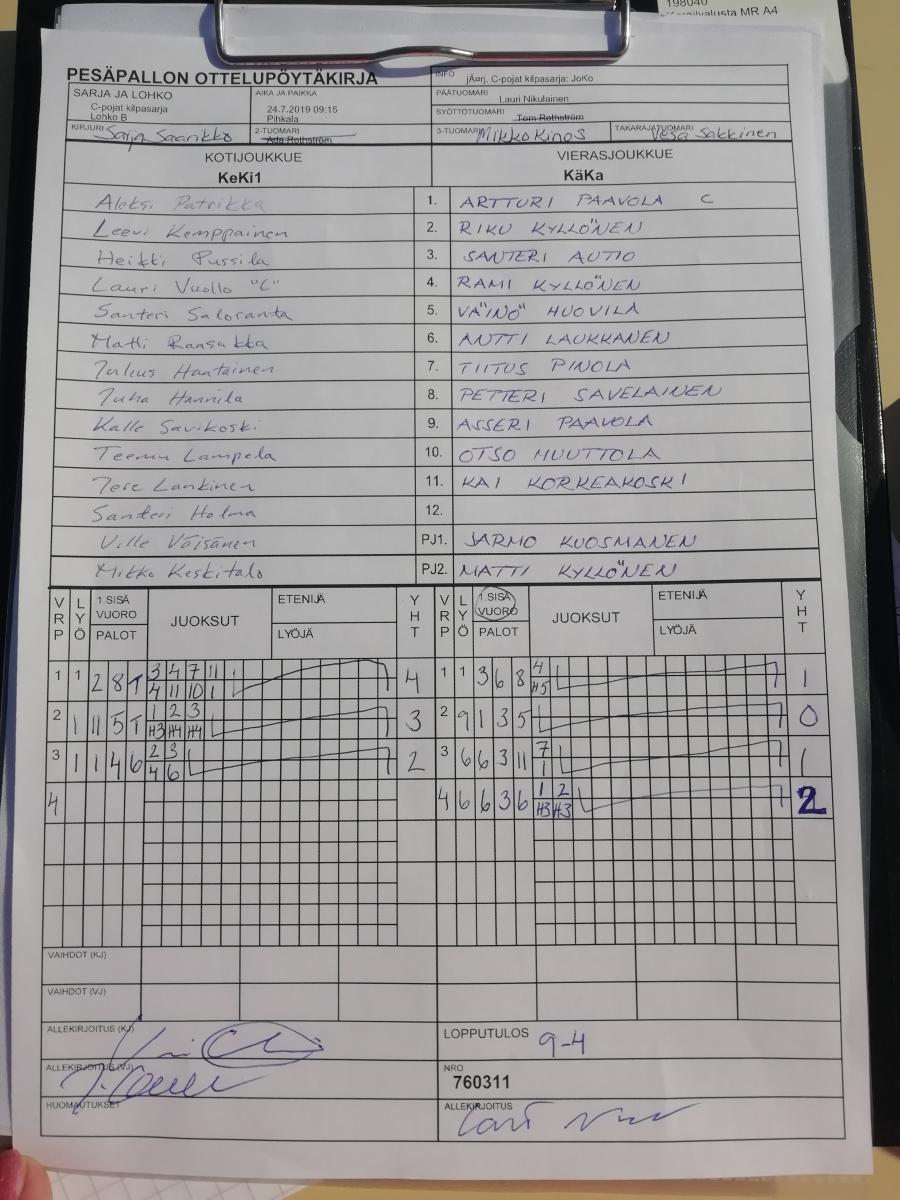 198040
MR A4
PESÄPALLON OTTELUPÖYTÄKIRJA
INFO jÃ¤rj, C-pojat kilpasarja: JoKo
SARJA JA LOHKO
C-pojat kilpasarja
Lohko B
AIKA JA PAIKKA
24.7.2019 09:15
Pihkala
PÄÄTUOMARI Lauri Nikulainen
SYÖTTÖTUOMARI Tom Rothström
KIRJURI Sarja Saarikko
2-TUOMARI Ada Rothström
3-TUOMARI Mikko Kinos
TAKARAJATUOMARI Vesa Sakkinen
KOTIJOUKKUE VIERASJOUKKUE
KeKi1 KäKa
Aleksi Patrikka 1. ARTTURI PAAVOLA C
Leevi Kemppainen 2. RIKU KYLLÖNEN
Heikki Pussila 3. SANTERI AUTIO
Lauri Vuollo "C" 4. RAMI KYLLÖNEN
Santeri Saloranta 5. VÄINÖ HUOVILA
Matti Raasakka 6. ANTTI LAUKKANEN
Julius Haatainen 7. TIITUS PINOLA
Juha Hannila 8. PETTERI SAVELAINEN
Kalle Savikoski 9. ASSERI PAAVOLA
Teemu Lampela 10. OTSO HUUTTOLA
Tere Lankinen 11. KAI KORKEAKOSKI
Santeri Holma 12.
Ville Väisänen PJ1. JARMO KUOSMANEN
Mikko Keskitalo PJ2. MATTI KYLLÖNEN
VRP LYÖ 1.SISÄ VUORO PALOT JUOKSUT ETENIJÄ LYÖJÄ YHT VRP LYÖ 1.SISÄ VUORO PALOT JUOKSUT ETENIJÄ LYÖJÄ YHT
1 1 2 8 T 3 4 7 11 4 1 1 3 6 8 4 1
4 11 10 1 H5
2 1 11 5 T 1 2 3 3 2 9 1 3 5 0
H3 H4 H4
3 1 1 4 6 2 3 2 3 6 6 3 11 7 1
4 6 1
4 4 6 6 3 6 1 2 2
H3 H3
VAIHDOT (KJ)
VAIHDOT (VJ)
ALLEKIRJOITUS (KJ) LOPPUTULOS 9-4
ALLEKIRJOITUS (VJ) NRO
760311
HUOMAUTUKSET ALLEKIRJOITUS